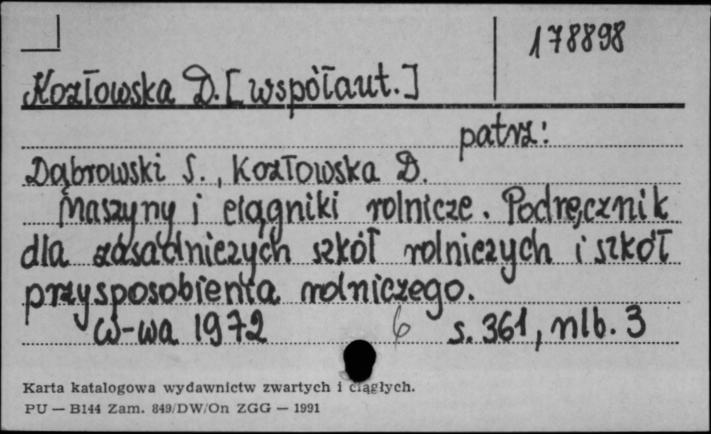 178898
Kozłowska D. [współaut.]
patrz:
Dąbrowski S., Kozłowska D.
Maszyny i ciągniki rolnicze. Podręcznik
dla zasadniczych szkół rolniczych i szkół
przysposobienia rolniczego.
W-wa 1972 6 s. 361, nlb. 3
Karta katalogowa wydawnictw zwartych i ciągłych.
PU — B144 Zam. 849/DW/On ZGG — 1991